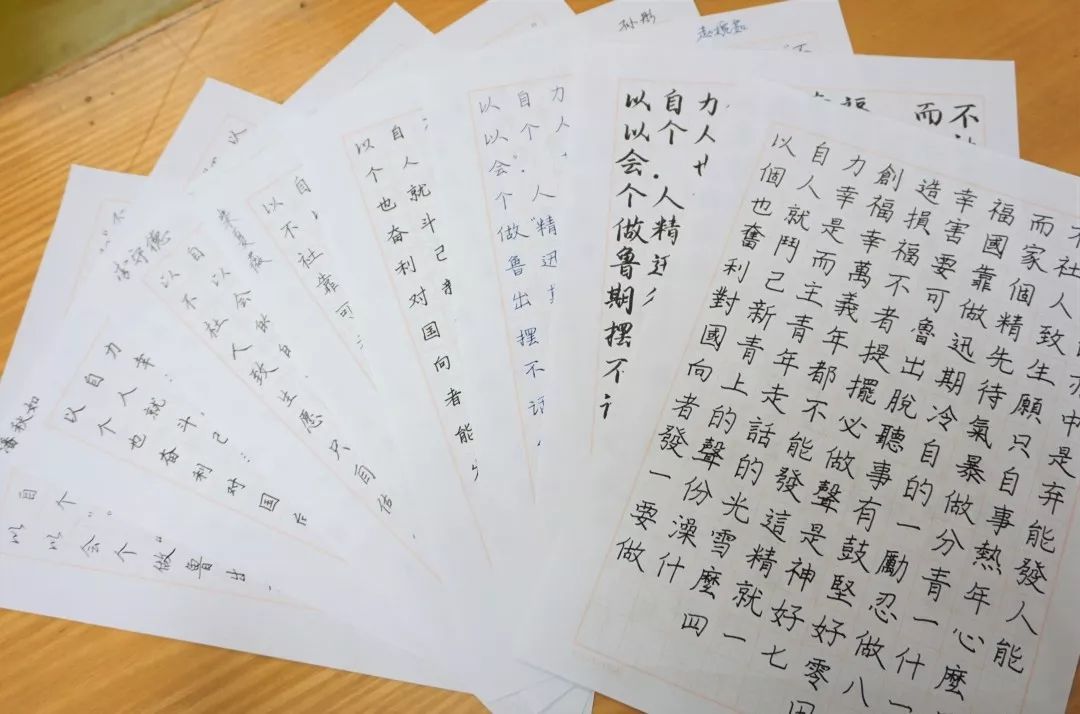 孙彤
潘秋如
以自
以个
会。
个
做“
鲁
出
以自力幸
个人
也就
奋斗
利己
对
国
以自
不以
社会
人
致自
生
愿
只
自
信
以自
不
社
靠
可
以自
个人
也就
奋斗
利己
对
国
向
者
能
以自力
以个人
会。
个人
做“精
鲁迅
出
摆
不
话
以自力
以个人
会.
个人
做精
鲁迅
期
摆
不
以自力創造幸福而不
個人幸福損害國家社
也就是幸福要靠個人
奮鬥而萬不可做精致
利己主義者魯迅先生
對新青年提出期待願中
國青年都擺脫冷氣只是
向上走不必聽自暴自弃
者的話能做事的做事能
發聲的發聲有一分熱發
一份光這是鼓勵青年人
要澡雪精神堅忍一心能
做什麼就好好做什麼
四一七零八一